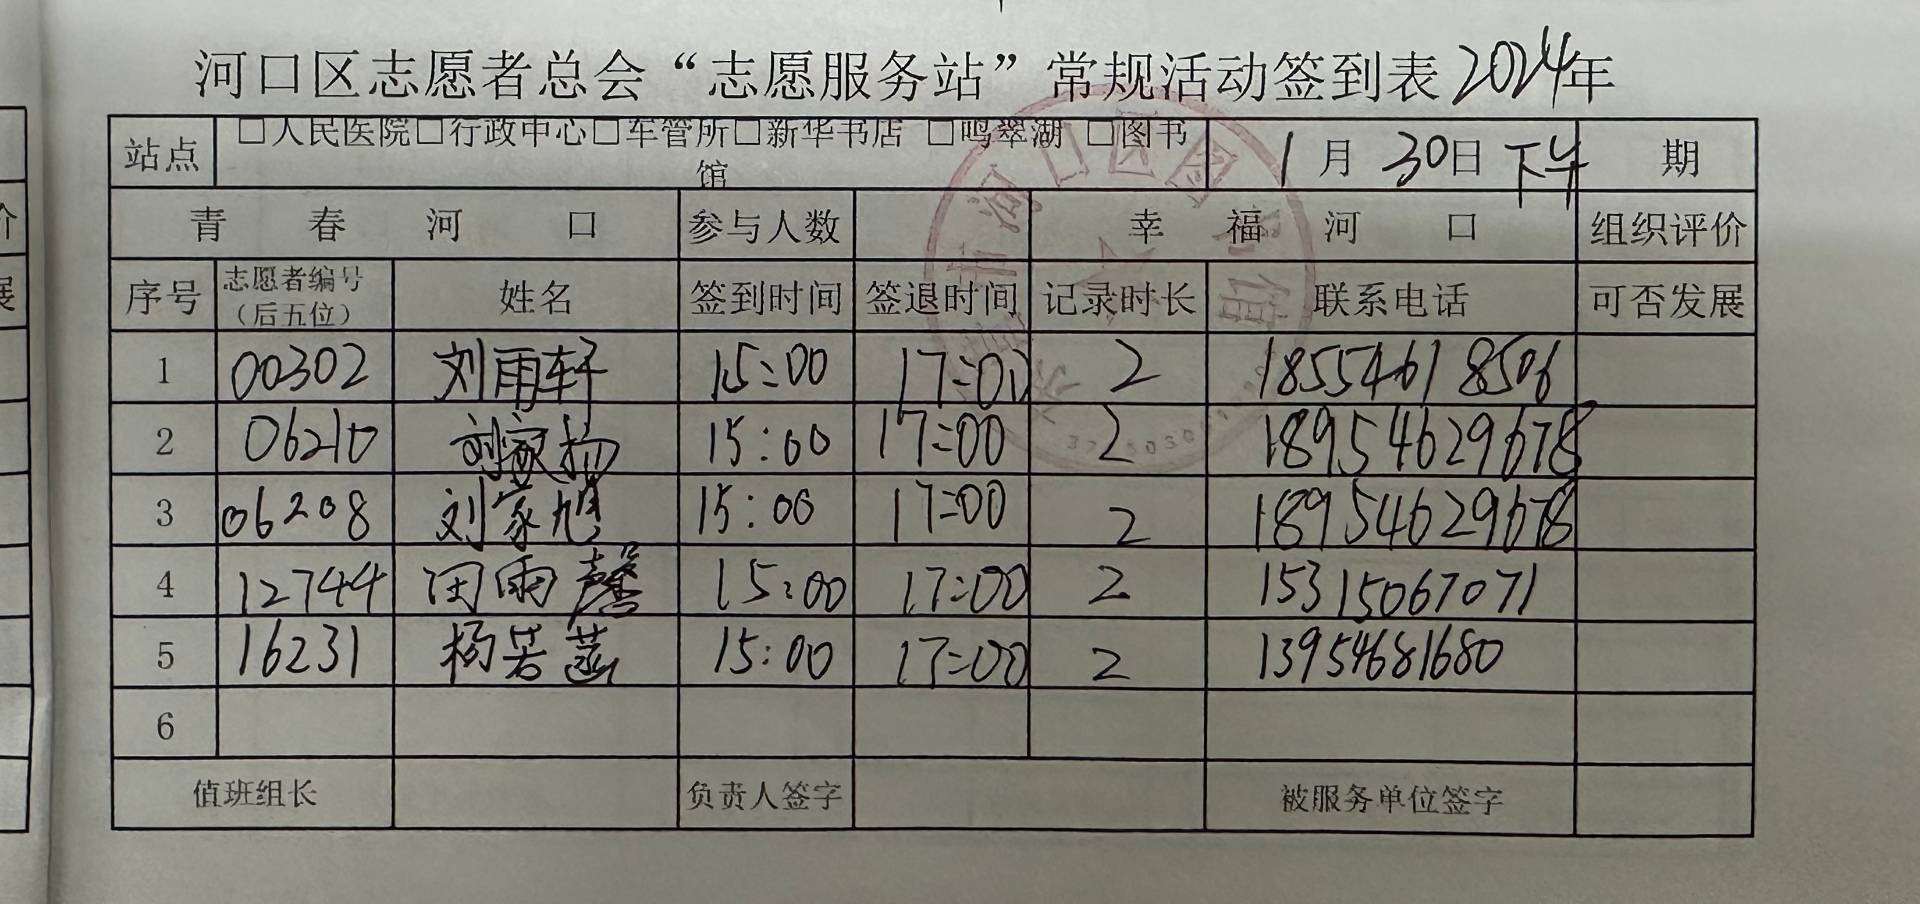 河口区志愿者总会“志愿服务站”常规活动签到表2024年
站点 □人民医院□行政中心□车管所□新华书店 □鸣翠湖 □图书馆 1月30日下午 期
青春河口 参与人数 幸福河口 组织评价
序号 志愿者编号（后五位） 姓名 签到时间 签退时间 记录时长 联系电话 可否发展
1 00302 刘雨轩 15:00 17:00 2 18554618506
2 06210 刘家扬 15:00 17:00 2 18954629678
3 06208 刘家旭 15:00 17:00 2 18954629678
4 12744 田雨馨 15:00 17:00 2 15315067071
5 16231 杨若菡 15:00 17:00 2 13954681680
6
值班组长 负责人签字 被服务单位签字